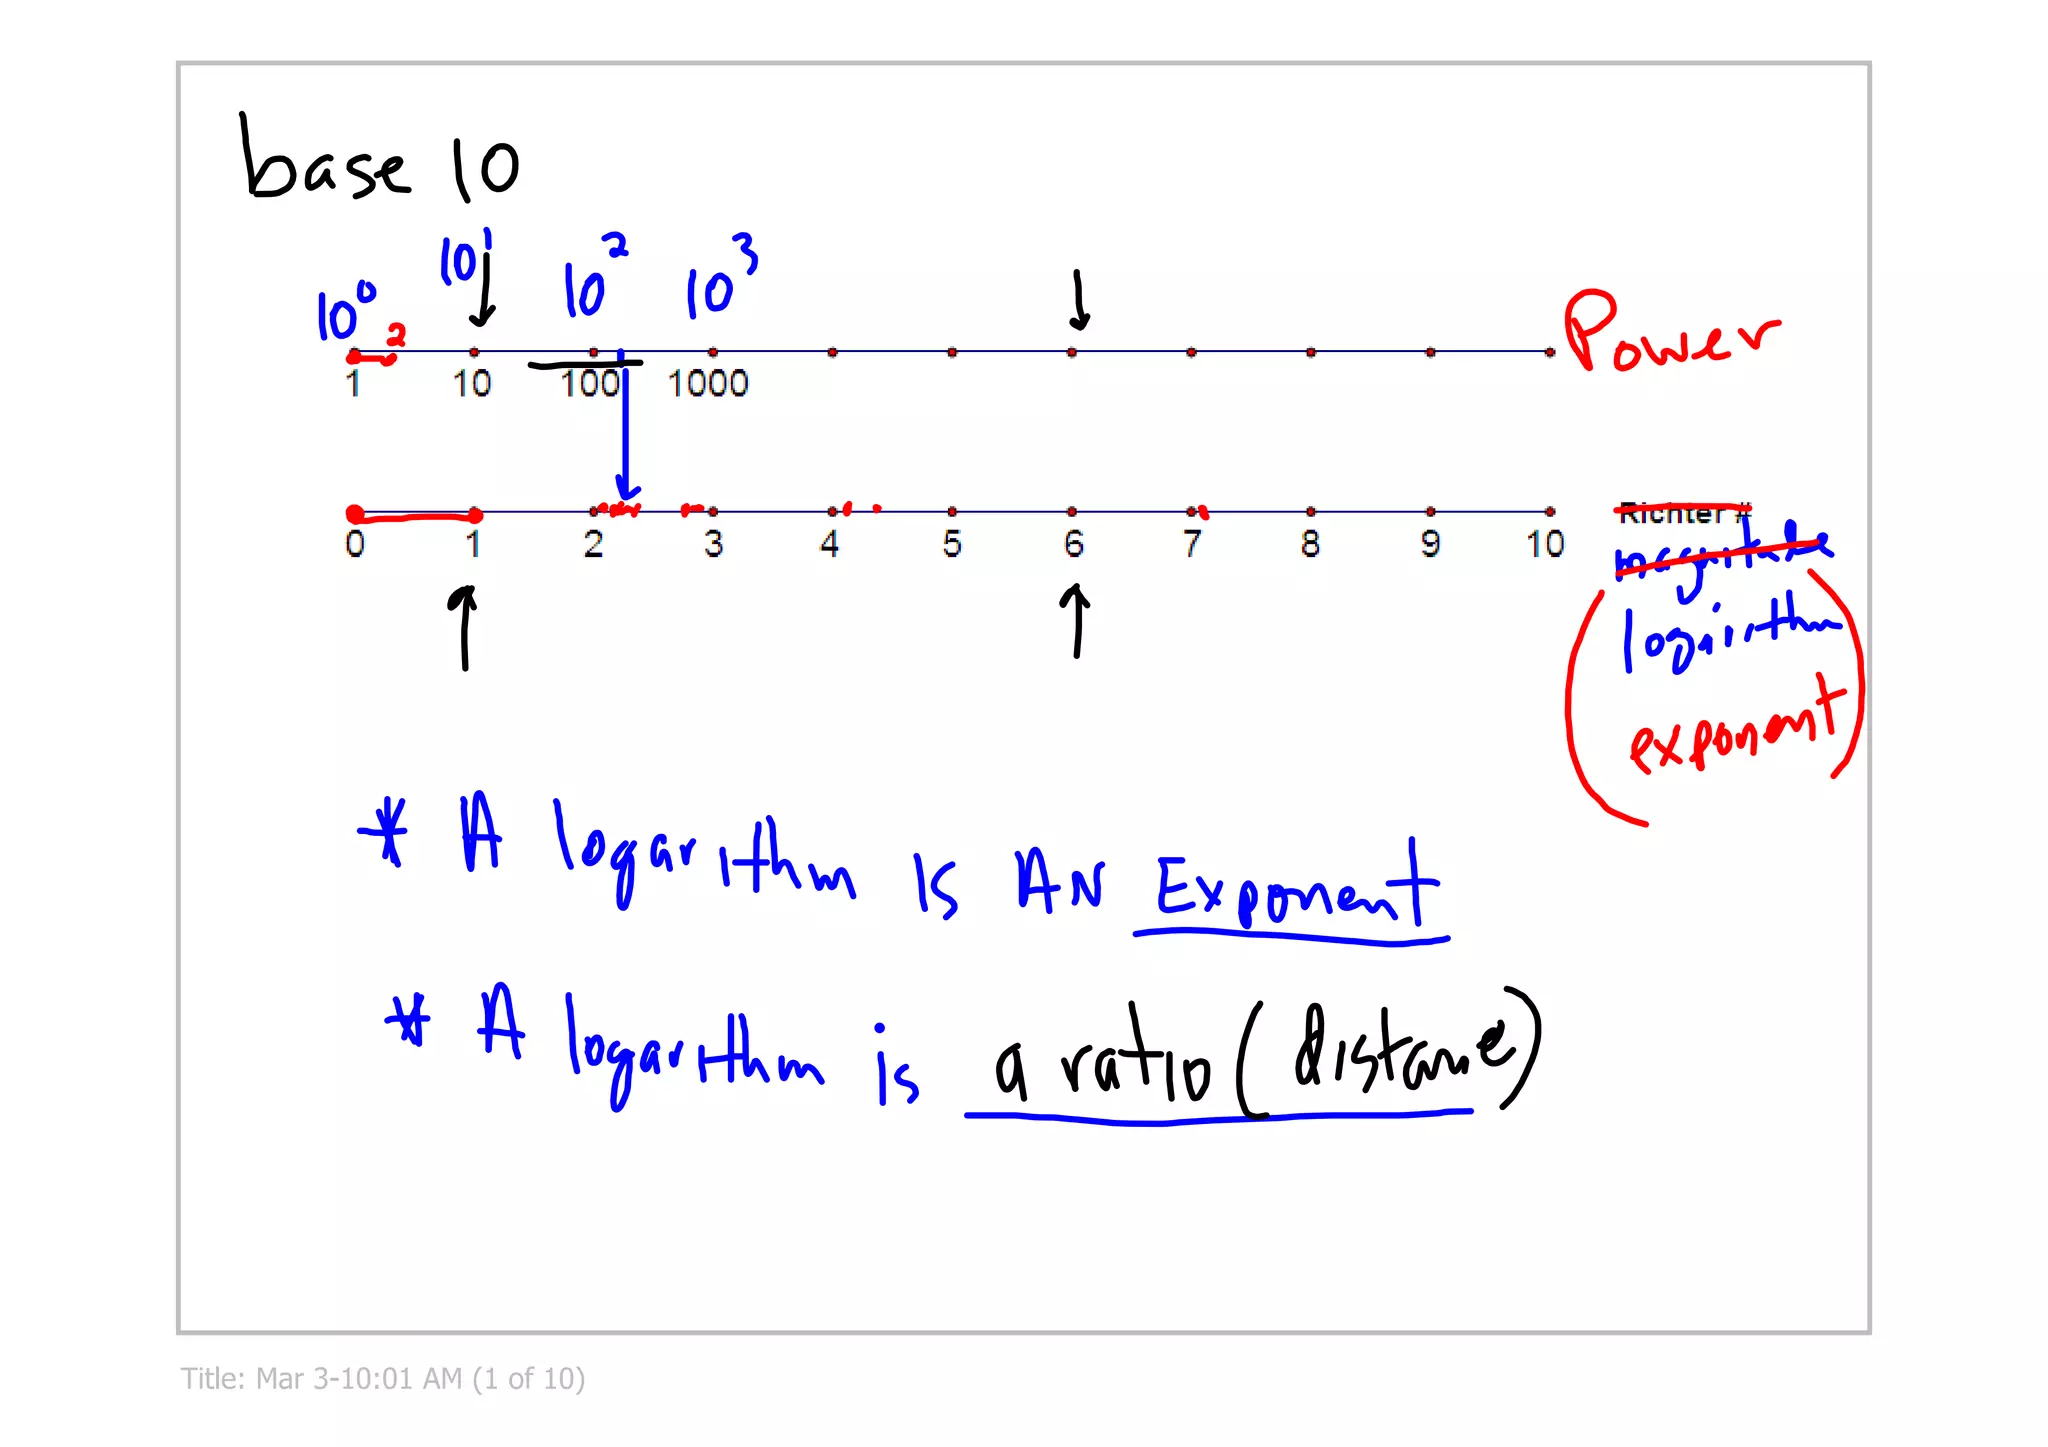 base 10
10⁰ 10¹ 10² 10³
2
Power
1 10 100 1000
0 1 2 3 4 5 6 7 8 9 10
Richter #
magnitude
logarithm
exponent
* A logarithm is AN Exponent
* A logarithm is a ratio (distance)
Title: Mar 3-10:01 AM (1 of 10)